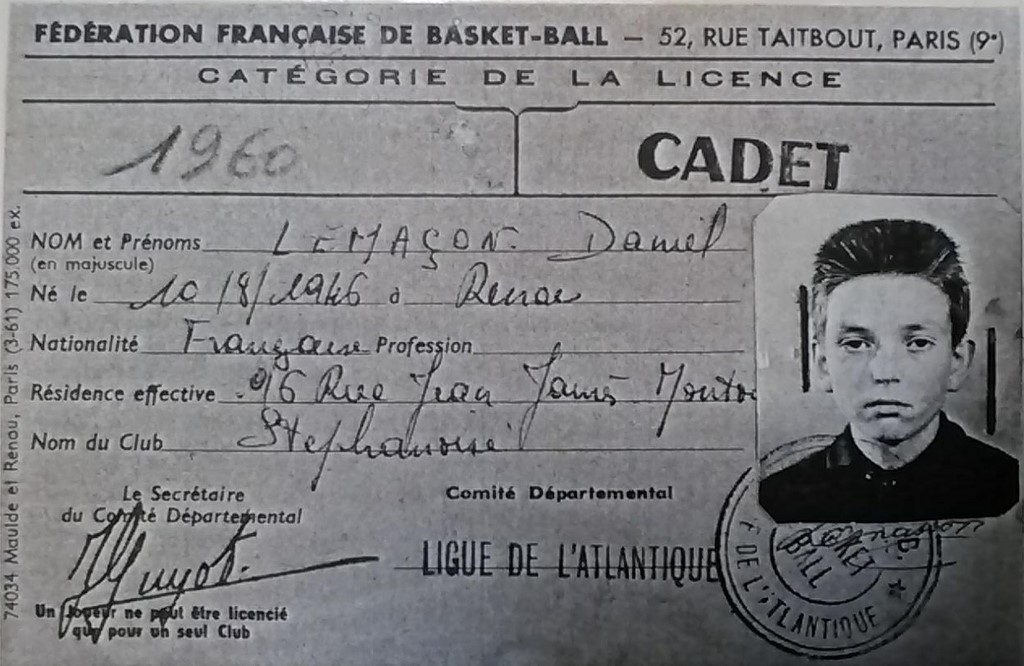 FÉDÉRATION FRANÇAISE DE BASKET-BALL — 52, RUE TAITBOUT, PARIS (9e)
CATÉGORIE DE LA LICENCE
1960
CADET
NOM et Prénoms LEMAÇON Daniel
(en majuscule)
Né le 10/8/1946 à
Nationalité Française Profession
Résidence effective 96 Rue Jean Jaurès
Nom du Club Stéphanoise
Le Secrétaire
du Comité Départemental
Comité Départemental
LIGUE DE L'ATLANTIQUE
Guyot
Un Joueur ne peut être licencié
que pour un seul Club
BASKET
BALL
DE L'ATLANTIQUE
74034 Maulde et Renou, Paris (3-61) 175.000 ex.